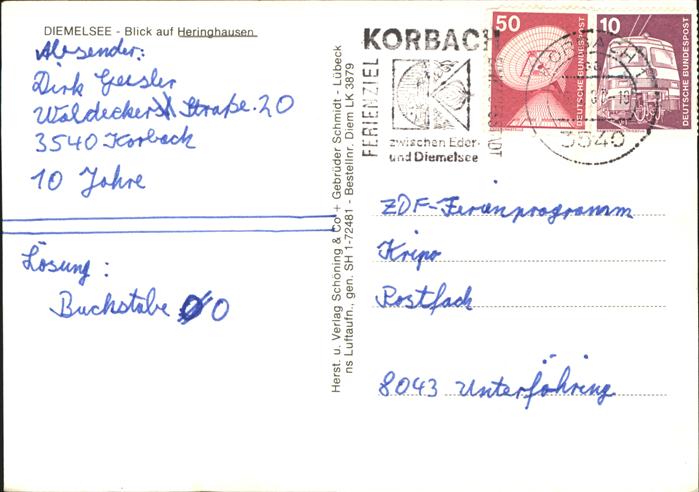 DIEMELSEE - Blick auf Heringhausen
Absender:
Dirk Geisler
Waldecker Straße 20
3540 Korback
10 Jahre
Lösung:
Buchstabe O
Herst. u. Verlag Schöning & Co + Gebrüder Schmidt - Lübeck
ns Luftaufn., gen. SH 1-72481 - Bestellnr. Diem LK 3879
KORBACH
FERIENZIEL
zwischen Eder-
und Diemelsee
3540
50
DEUTSCHE BUNDESPOST
10
DEUTSCHE BUNDESPOST
ZDF-Ferienprogramm
Kripo
Postfach
8043 Unterföhring